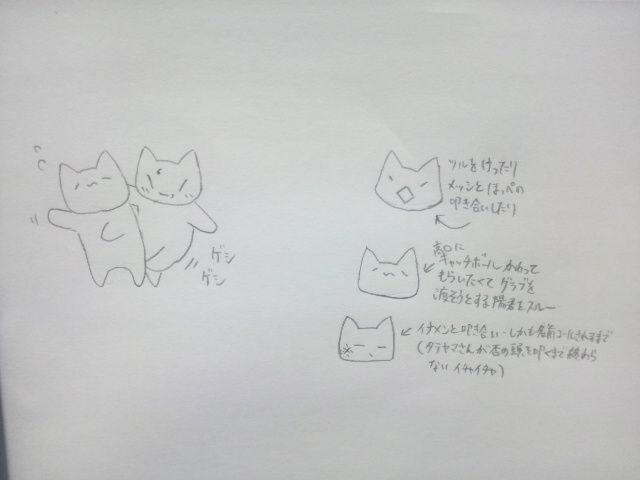 ゲシ
ゲシ
ツルをけったり
メッシとほっぺの
叩き合いしたり
に
キャッチボールかわって
もらいたくて グラブを
渡そうとする陽君をスルー
イケメンと叩き合い・しかも名前コールされるまで
(タテヤマさんが杏の頭を叩くまで終わら
ないイチャイチャ)